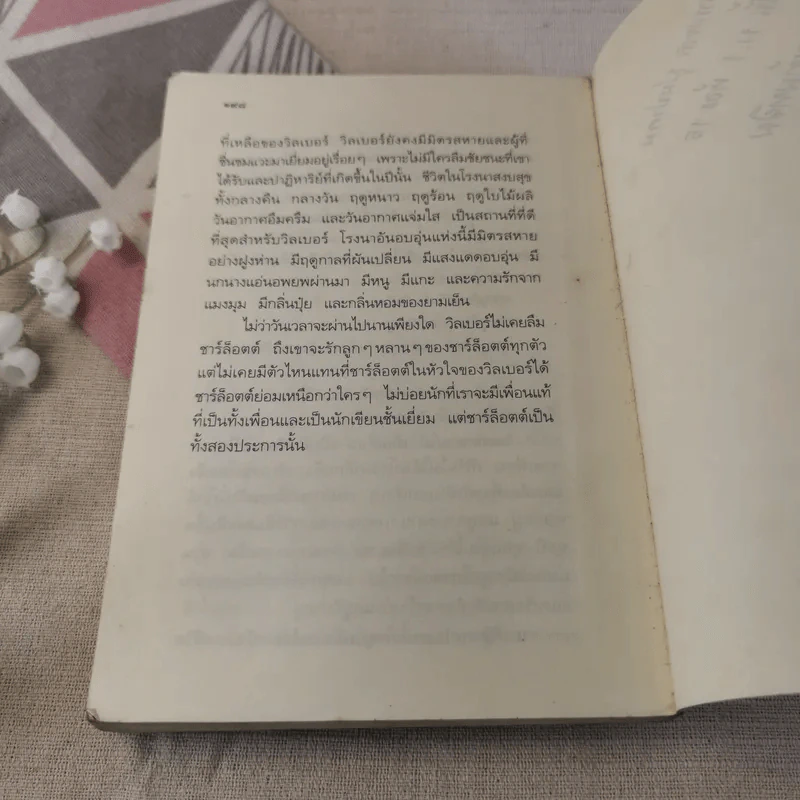 ๒๙๘
ที่เหลือของวิลเบอร์ วิลเบอร์ยังคงมีมิตรสหายและผู้ที่
ชื่นชมแวะมาเยี่ยมอยู่เรื่อยๆ เพราะไม่มีใครลืมชัยชนะที่เขา
ได้รับและปาฏิหาริย์ที่เกิดขึ้นในปีนั้น ชีวิตในโรงนาสงบสุข
ทั้งกลางคืน กลางวัน ฤดูหนาว ฤดูร้อน ฤดูใบไม้ผลิ
วันอากาศอึมครึม และวันอากาศแจ่มใส เป็นสถานที่ที่ดี
ที่สุดสำหรับวิลเบอร์ โรงนาอันอบอุ่นแห่งนี้มีมิตรสหาย
อย่างฝูงห่าน มีฤดูกาลที่ผันเปลี่ยน มีแสงแดดอบอุ่น มี
นกนางแอ่นอพยพผ่านมา มีหนู มีแกะ และความรักจาก
แมงมุม มีกลิ่นปุ๋ย และกลิ่นหอมของยามเย็น
ไม่ว่าวันเวลาจะผ่านไปนานเพียงใด วิลเบอร์ไม่เคยลืม
ชาร์ล็อตต์ ถึงเขาจะรักลูกๆ หลานๆ ของชาร์ล็อตต์ทุกตัว
แต่ไม่เคยมีตัวไหนแทนที่ชาร์ล็อตต์ในหัวใจของวิลเบอร์ได้
ชาร์ล็อตต์ย่อมเหนือกว่าใครๆ ไม่บ่อยนักที่เราจะมีเพื่อนแท้
ที่เป็นทั้งเพื่อนและเป็นนักเขียนชั้นเยี่ยม แต่ชาร์ล็อตต์เป็น
ทั้งสองประการนั้น